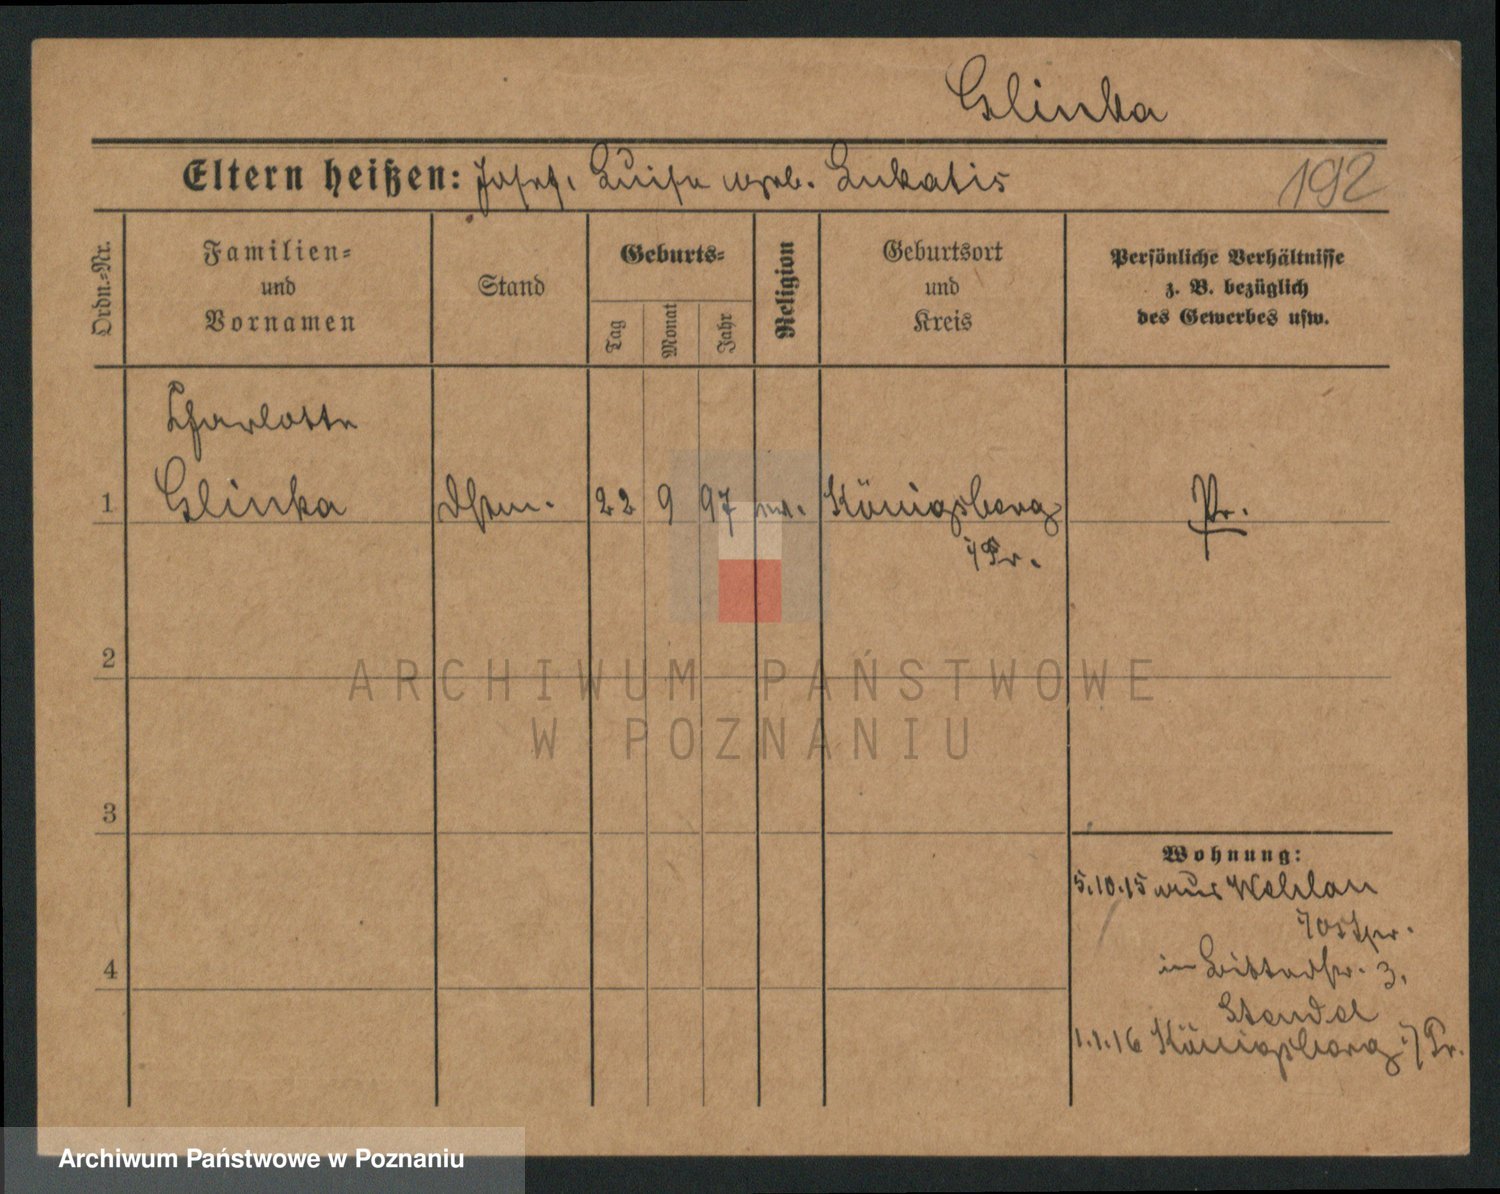 Glinka
Eltern heißen: Josef, Luise geb. Lukatis
192
Ordn.-Nr.
Familien-
und
Vornamen
Stand
Geburts-
Tag
Monat
Jahr
Religion
Geburtsort
und
Kreis
Persönliche Verhältnisse
z. B. bezüglich
des Gewerbes usw.
Charlotte
1 Glinka 22 9 97 Königsberg Pr.
i/Pr.
2
ARCHIWUM PAŃSTWOWE
W POZNANIU
3
Wohnung:
5.10.15 aus Wehlau
i/Ostpr.
in Ritterstr. 3.
4
1.1.16 Königsberg i/Pr.
Archiwum Państwowe w Poznaniu